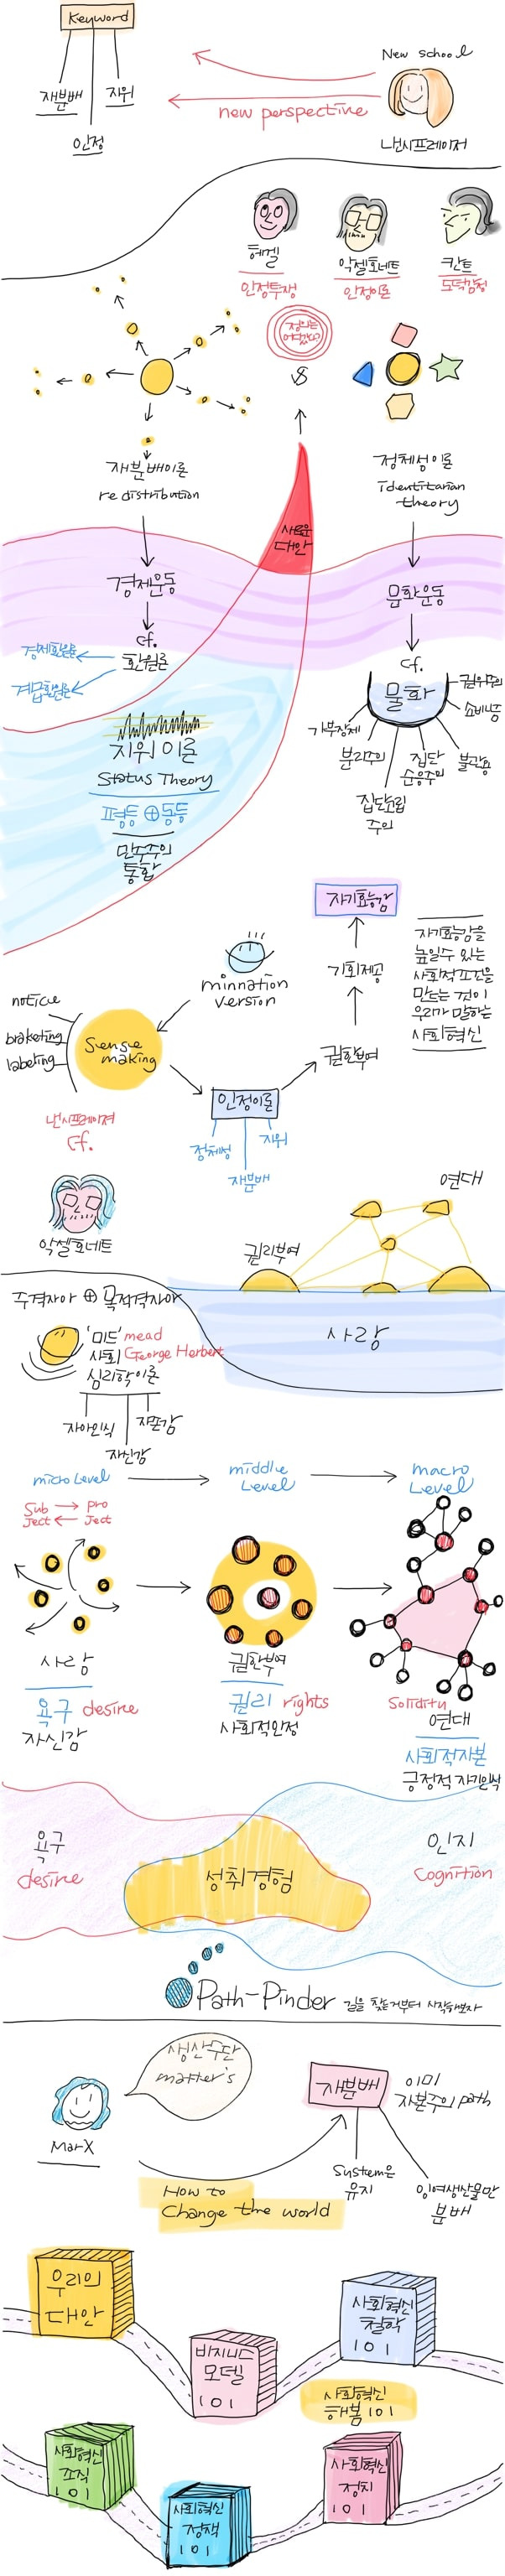 Keyword
재분배
인정
지위
New school
new perspective
낸시프레이저
헤겔
인정투쟁
악셀호네트
인정이론
칸트
도덕감정
정의는
어디있나?
VS
재분배이론
redistribution
정체성이론
identitarian
theory
새로운
대안
경제운동
cf.
환원론
경제환원론
계급환원론
문화운동
cf.
물화
가부장제
분리주의
집단독립
주의
집단
순응주의
불관용
지위이론
Status Theory
평등⊕동등
민주주의
통합
자기효능감
기회제공
권한부여
자기효능감을
높일수 있는
사회적조건을
만드는 것이
우리가 말하는
사회혁신
minnation
version
notice
braketing
labeling
Sense
making
인정이론
정체성
재분배
지위
낸시프레이저
cf.
악셀호네트
연대
권리부여
사랑
주격자아 ⊕ 목적격자아
'미드' mead
George Herbert
사회
심리학이론
자아인식
자신감
자존감
micro Level
middle
Level
macro
Level
Sub
ject
pro
ject
사랑
욕구 desire
자신감
권한부여
권리 rights
사회적인정
연대
사회적자본
긍정적 자기인식
욕구
desire
성취경험
인지
Cognition
Path-Pinder 길을 찾는거부터 시작해보자
생산수단
matter's
MarX
재분배
이미
자본주의 path
System은
유지
잉여생산물만
분배
How to
Change the world
우리의
대안
비지니스
모델
101
사회혁신
철학
101
사회혁신
해봄 101
사회혁신
조직
101
사회혁신
정책
101
사회혁신
정치
101